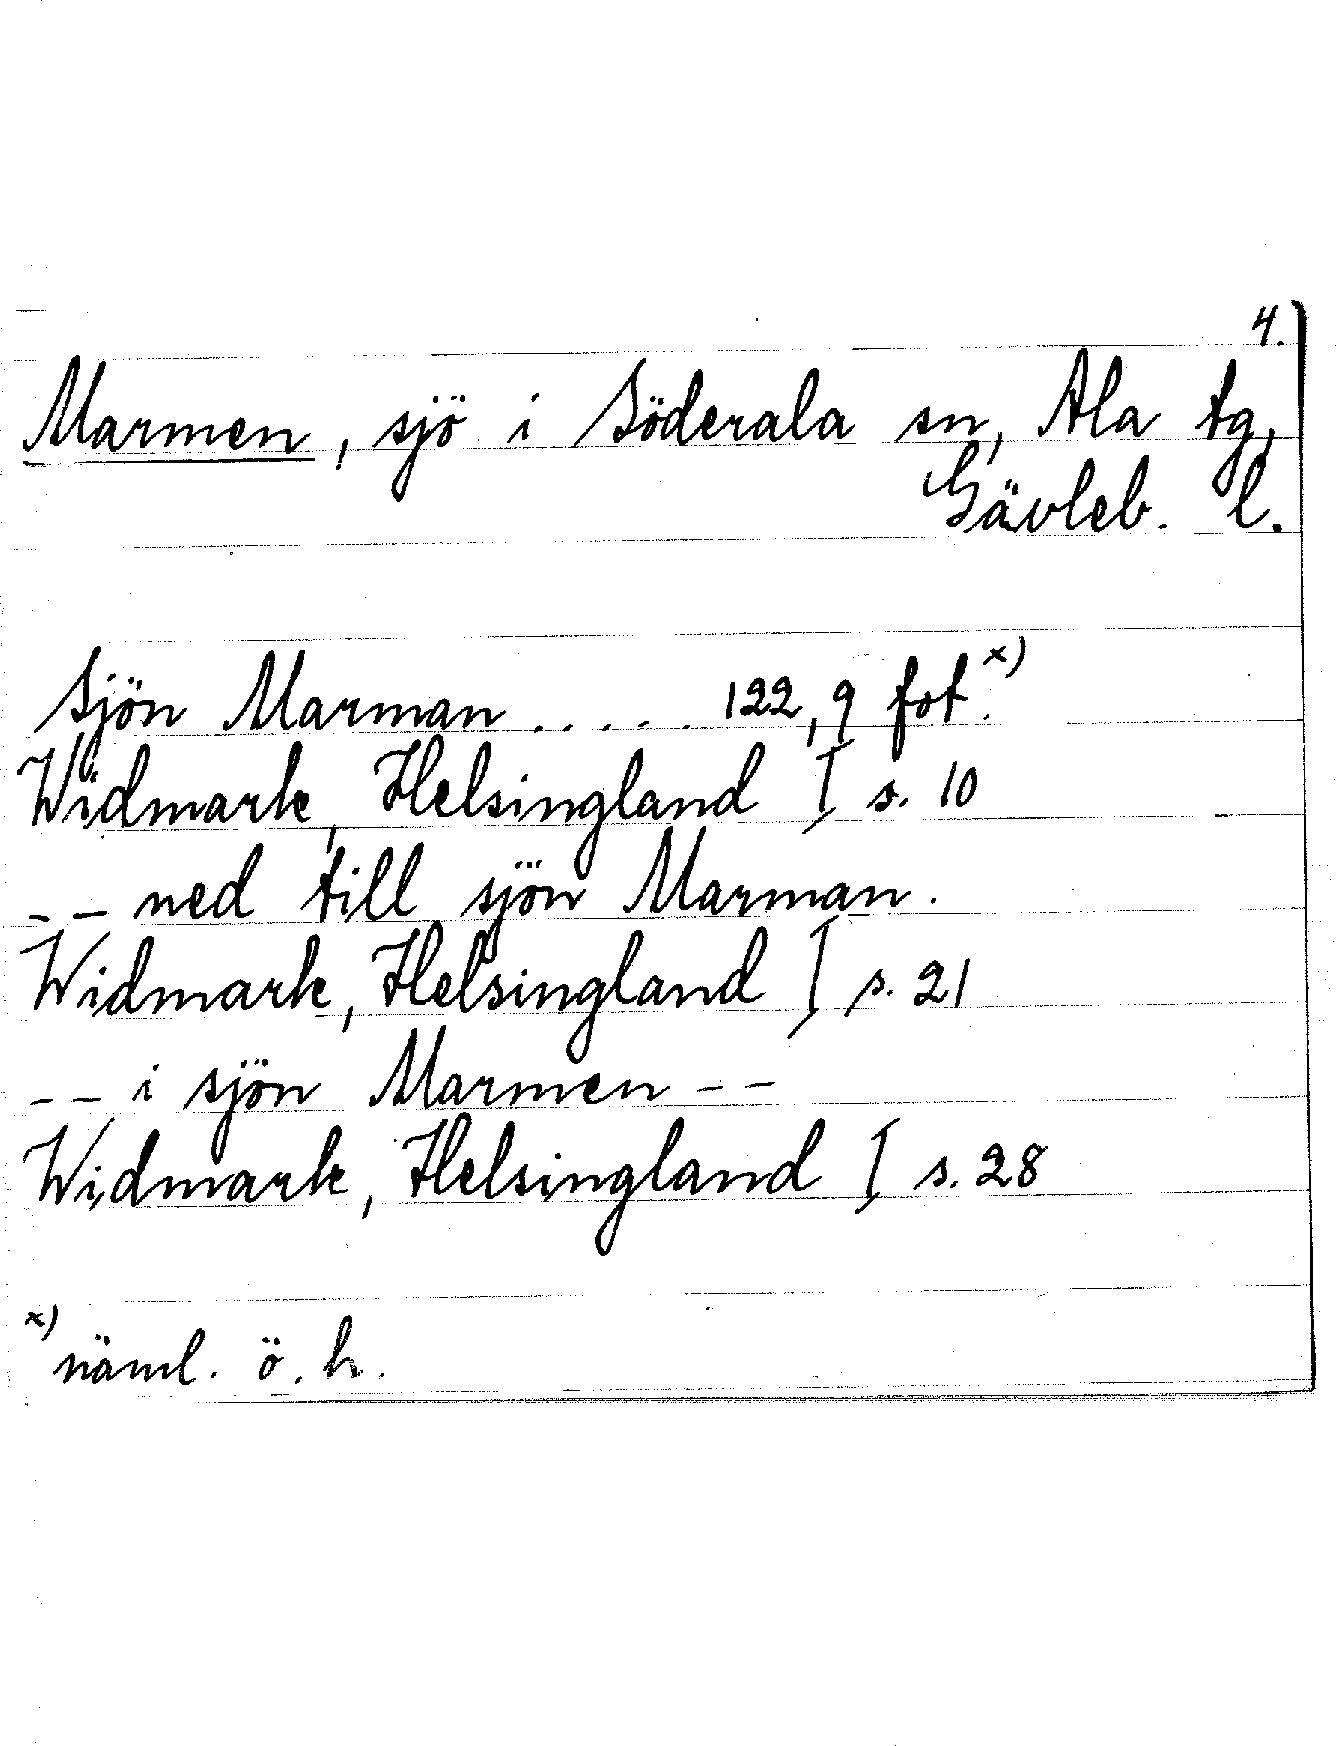 4.
Marmen, sjö i Söderala sn, Ala tg,
Gävleb. l.
Sjön Marman . . . . . 122,9 fot. x)
Widmark, Helsingland I s. 10
-- ned till sjön Marman.
Widmark, Helsingland I s. 21
-- i sjön Marmen --
Widmark, Helsingland I s. 28
x) näml. ö. h.